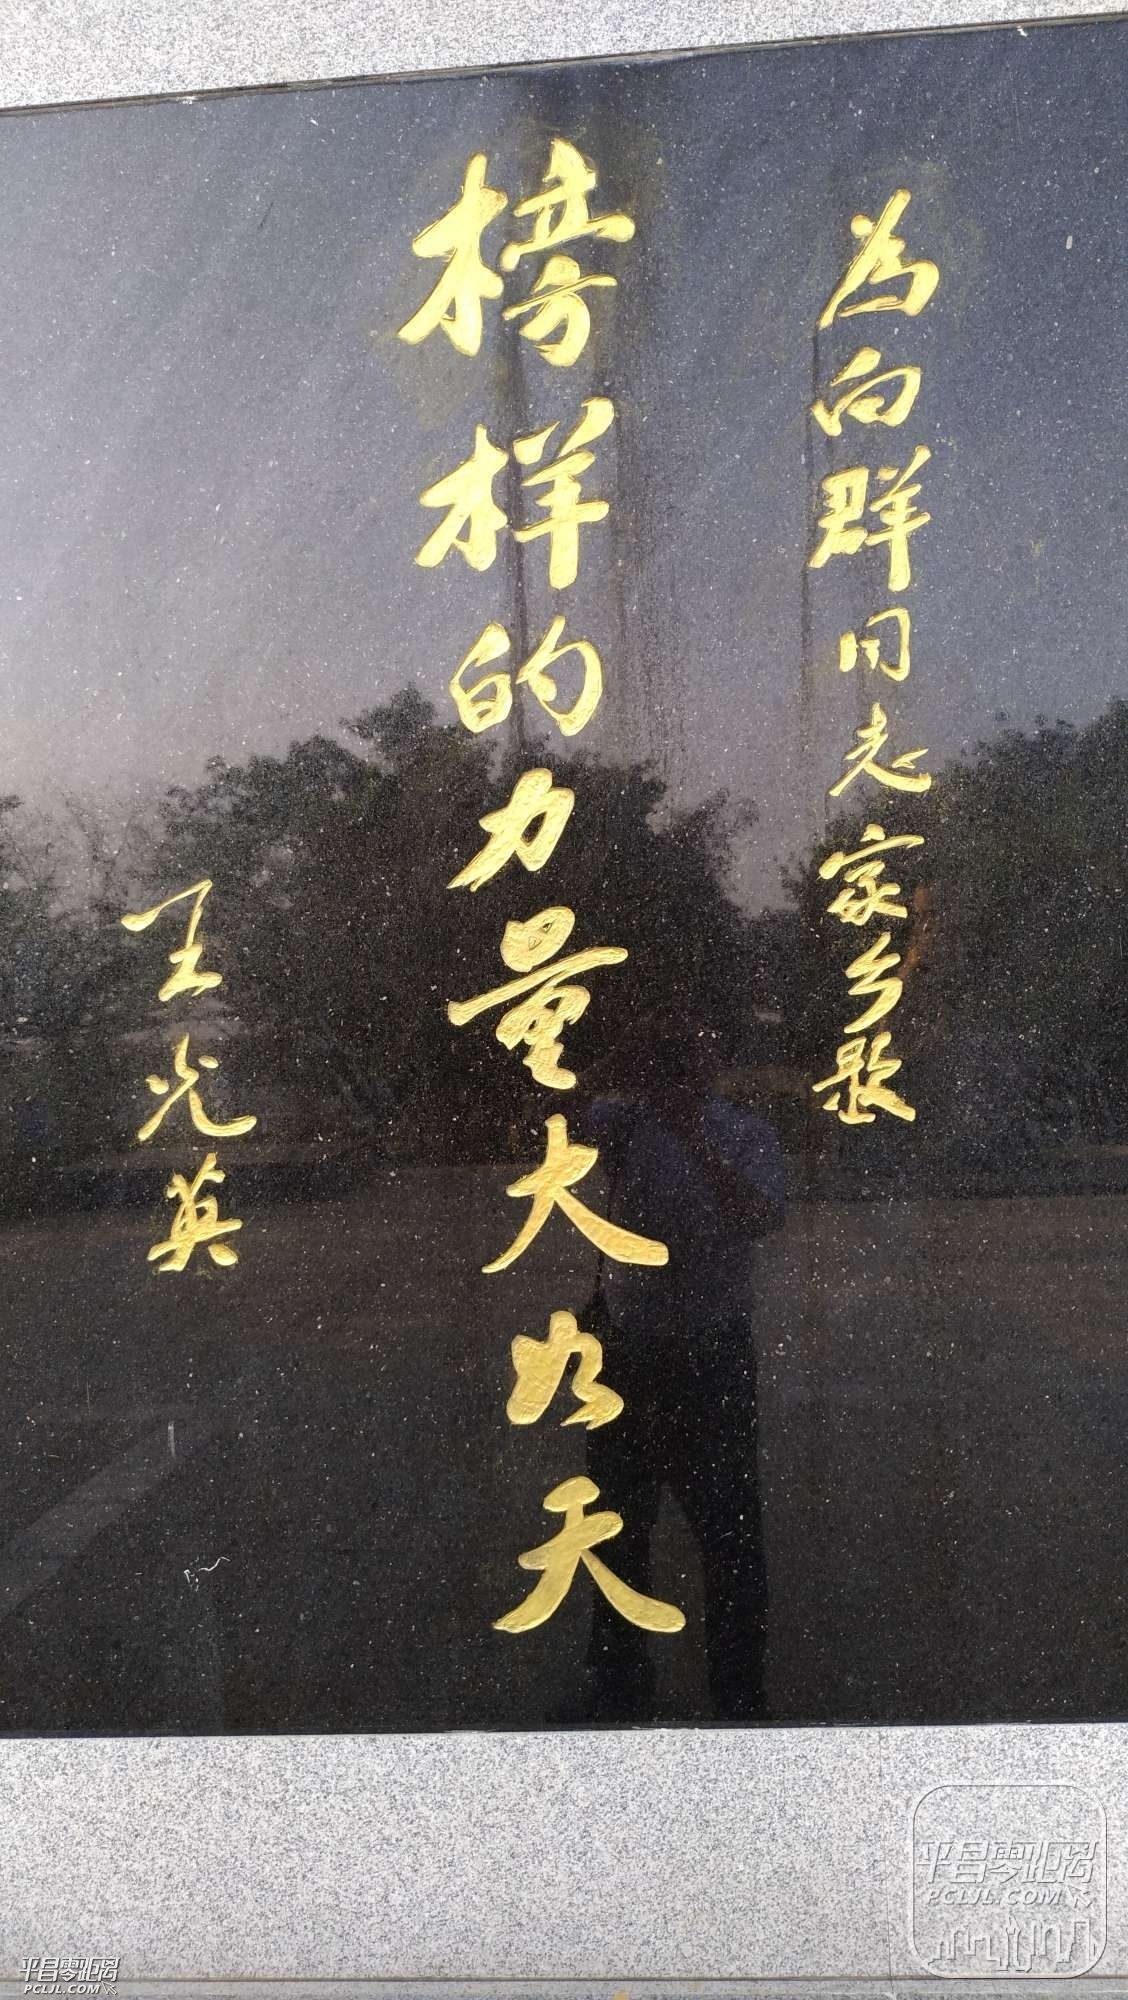 为向群同志家乡题
榜样的力量大如天
王光英
平昌零距离
PCLJL.COM
平昌零距离
PCLJL.COM